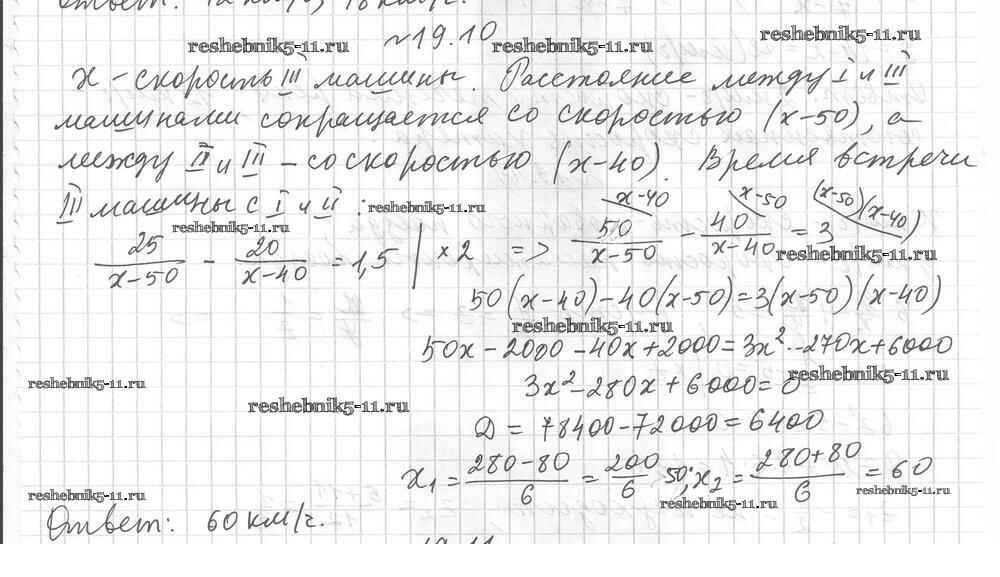 Ответ: 12 км/ч, 18 км/ч.
reshebnik5-11.ru №19.10 reshebnik5-11.ru reshebnik5-11.ru
x - скорость III машины. Расстояние между I и III
машинами сокращается со скоростью (x-50), а
между II и III - со скоростью (x-40). Время встречи
III машины с I и II : reshebnik5-11.ru x-40 x-50 (x-50)(x-40)
reshebnik5-11.ru
25/(x-50) - 20/(x-40) = 1,5 | × 2 => 50/(x-50) - 40/(x-40) = 3
reshebnik5-11.ru
50(x-40)-40(x-50)=3(x-50)(x-40)
reshebnik5-11.ru
50x-2000-40x+2000=3x²-270x+6000
reshebnik5-11.ru reshebnik5-11.ru
3x²-280x+6000=0
reshebnik5-11.ru
D = 78400-72000=6400
x₁ = (280-80)/6 = 200/6 50; x₂ = (280+80)/6 = 60
reshebnik5-11.ru reshebnik5-11.ru reshebnik5-11.ru
Ответ: 60 км/ч.
19.11